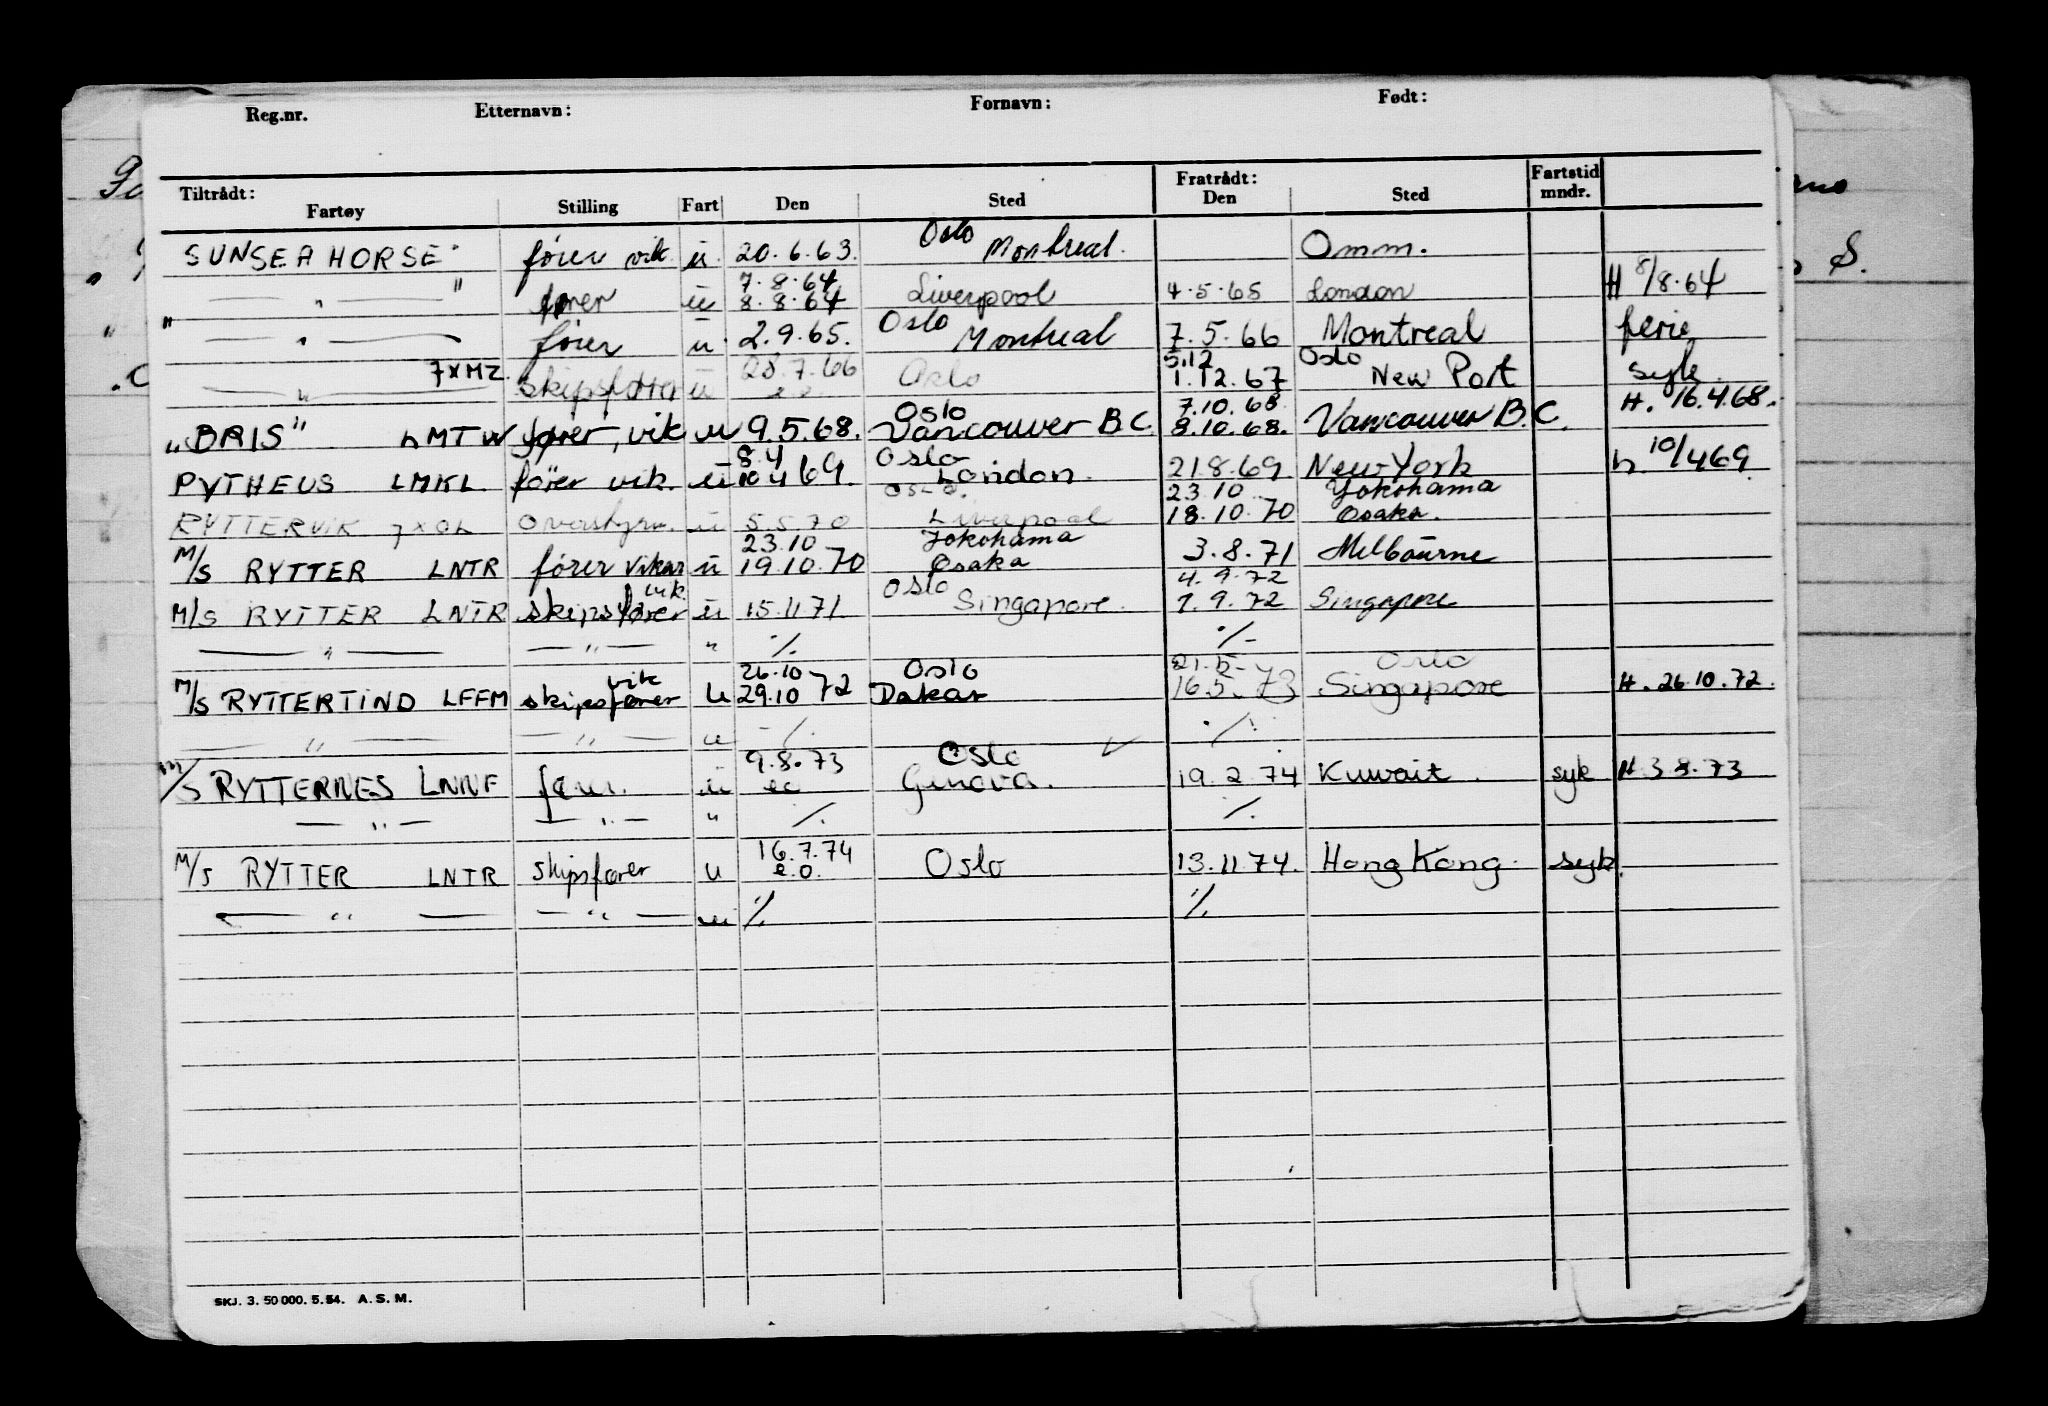 Reg.nr. Etternavn: Fornavn: Født:
Tiltrådt: Fratrådt: Fartstid
Fartøy Stilling Fart Den Sted Den Sted mndr.
SUNSEAHORSE" fører vik. ü. 20.6.63. Oslo Montreal. Omm.
— " — " fører ü 7.8.64 8.8.64 Liverpool 4.5.65 London H 8/8.64
" — " — fører u 2.9.65. Oslo Montreal 7.5.66 Montreal ferie
— " — 7XMZ skipsfører ü 28.7.66 e.o. Oslo 5.12 1.12.67 Oslo New Port syk
"BRIS" LMTW fører, vik u 9.5.68. Oslo Vancouver B.C. 7.10.68 8.10.68. Vancouver B.C. H. 16.4.68.
PYTHEUS LMKL fører vik. ü 8.4 10.4 69. Oslo London. 21.8.69 New York h 10/4 69
RYTTERVIK 7XOL Overstyrm. ü 5.5.70 Oslo. Liverpool 23.10 18.10.70 Yokohama Osaka.
M/S RYTTER LNTR fører vikar ü 23.10 19.10.70 Yokohama Osaka 3.8.71 Melbourne
M/S RYTTER LNTR skipsfører vik. ü 15.11.71 Oslo Singapore. 4.9.72 1.9.72 Singapore
— " — — " — " ./. ./.
M/S RYTTERTIND LFFM skipsfører vik u 26.10 29.10 72 Oslo Dakar 21.5. 16.5.73 Oslo Singapore H. 26.10.72.
— " — — " — u ./. ./.
M/S RYTTERNES LNNF fører. ü 9.8.73 eo Oslo Genova. 19.2.74 Kuwait. syk H 3 8.73
— " — — " — " ./. ./.
M/S RYTTER LNTR skipsfører u 16.7.74 e.o. Oslo 13.11.74. Hong Kong. syk.
— " — — " — u ./. ./.
SKJ. 3. 50 000. 5. 54. A. S. M.